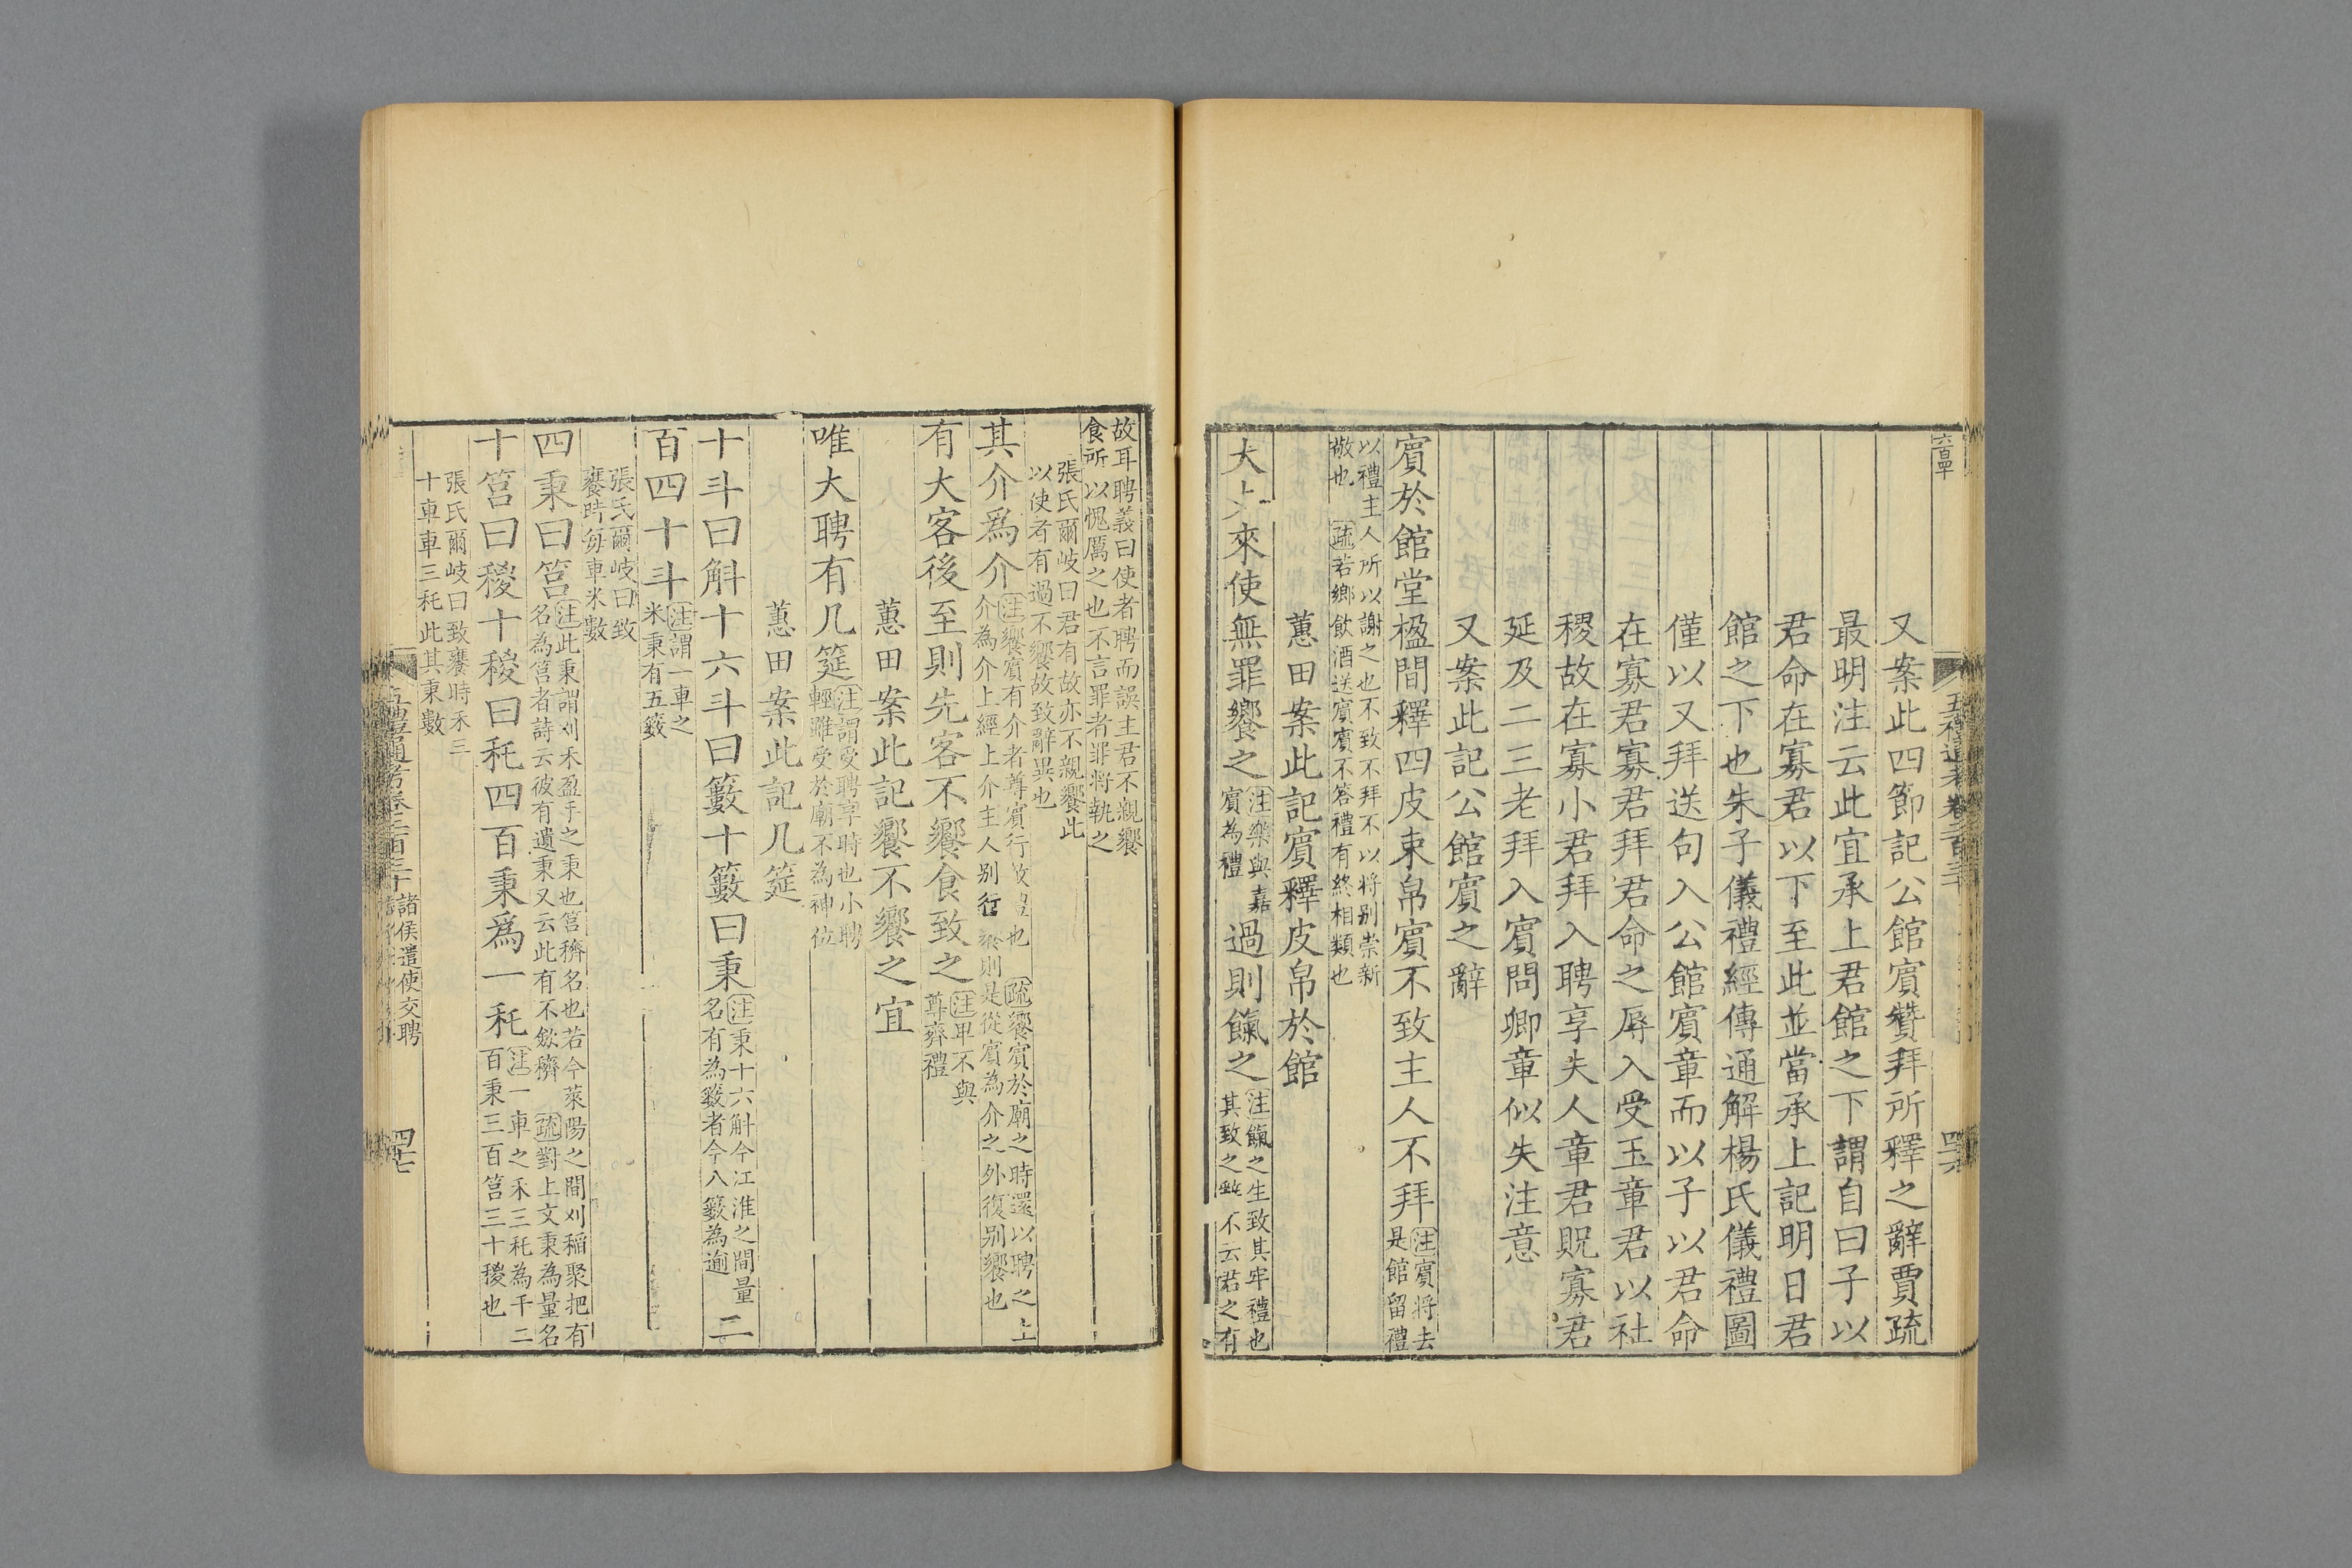 又案此四節記公館賓贊拜所釋之辭賈疏
最明注云此宜承上君館之下謂自曰子以
君命在寡君以下至此並當承上記明日君
館之下也朱子儀禮經傳通解楊氏儀禮圖
僅以又拜送句入公館賓章而以子以君命
在寡君寡君拜君命之辱入受玉章君以社
稷故在寡小君拜入聘享夫人章君貺寡君
延及二三老拜入賓問卿章似失注意
又案此記公館賓之辭
賓於館堂楹間釋四皮束帛賓不致主人不拜注賓將去
是館留禮
以禮主人所以謝之也不致不拜不以將别崇新
敬也 疏若鄉飲酒送賓賓不答禮有終相類也
蕙田案此記賓釋皮帛於館
大夫來使無罪饗之注樂與嘉
賓為禮過則餼之注餼之生致其牢禮也
其致之辭不云君之有
故耳聘義曰使者聘而誤主君不親饗
食所以愧厲之也不言罪者罪將執之
張氏爾岐曰君有故亦不親饗此
以使者有過不饗故致辭異也
其介爲介注饗賓有介者尊賓行敬也 疏饗賓於廟之時還以聘之上
介為介上經上介主人别行饗則是從賓為介之外復别饗也
有大客後至則先客不饗食致之注卑不與
尊齊禮
蕙田案此記饗不饗之宜
唯大聘有几筵注謂受聘享時也小聘
輕雖受於廟不為神位
蕙田案此記几筵
十斗曰斛十六斗曰籔十籔曰秉注秉十六斛今江淮之間量
名有為籔者今八籔為逾二
百四十斗注謂一車之
米秉有五籔
張氏爾岐曰致
饔時每車米數
四秉曰筥注此秉謂刈禾盈手之秉也筥穧名也若今萊陽之間刈稻聚把有
名為筥者詩云彼有遺秉又云此有不斂穧 疏對上文秉為量名
十筥曰稯十稯曰秅四百秉爲一秅注一車之禾三秅為千二
百秉三百筥三十稯也
張氏爾岐曰致饔時禾三
十車車三秅此其秉數
五禮通考卷二百三十 諸侯遣使交聘